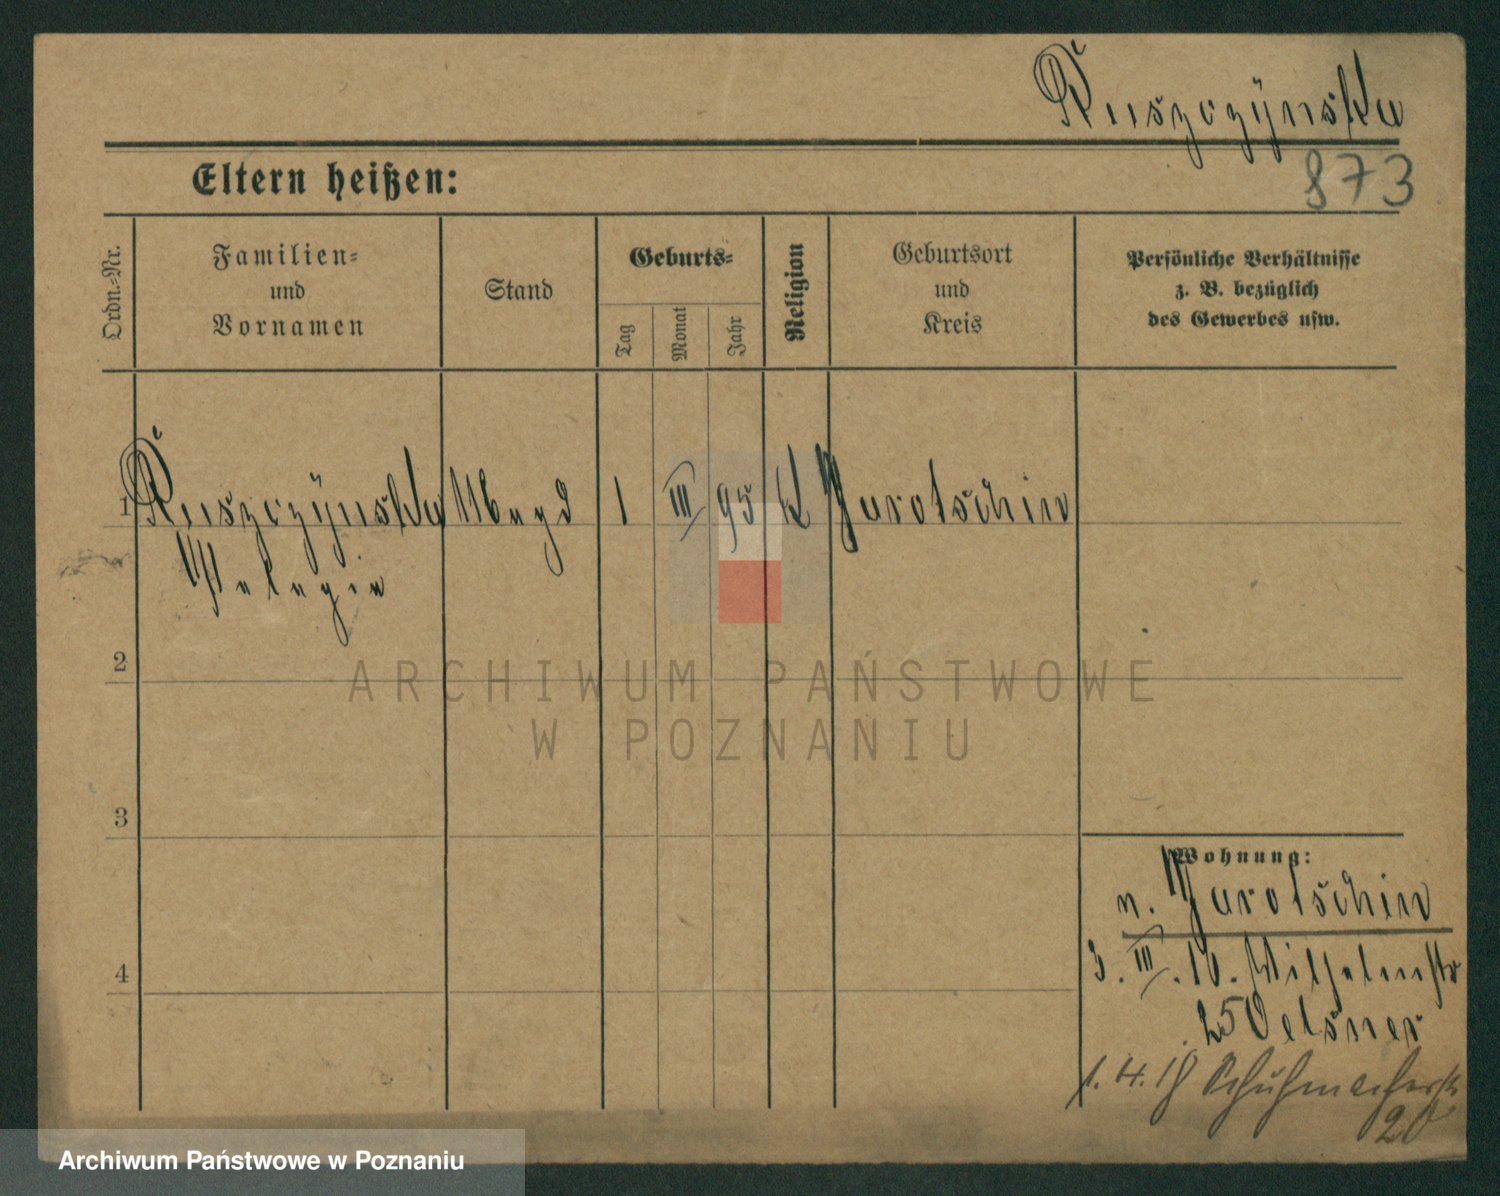 Ruszczynska
873
Eltern heißen:
Ordn.-Nr.
Familien-
und
Vornamen
Stand
Geburts-
Tag
Monat
Jahr
Religion
Geburtsort
und
Kreis
Persönliche Verhältnisse
z. B. bezüglich
des Gewerbes usw.
1 Ruszczynska Magd 1 III 95 K Jarotschin
Pelagia
2
3
4
Wohnung:
n. Jarotschin
3. III. 16. Wilhelmstr
25 Oelsner
1. 4. 18 Schuhmacherstr
20
ARCHIWUM PAŃSTWOWE
W POZNANIU
Archiwum Państwowe w Poznaniu